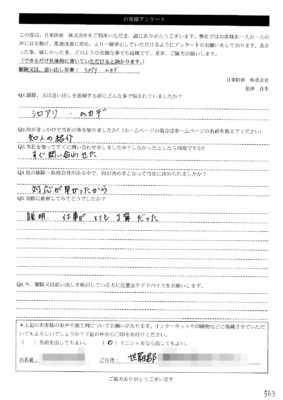 お客様アンケート
この度は、日東防疫 株式会社をご利用いただき、誠にありがとうございます。弊社ではお客様お一人お一人の
声に耳を傾け、業務改善に努め、より一層安心していただけるようにアンケートのお願いをしております。良か
った事、嬉しかった事、どのような些細な事でも結構です。是非、ご協力お願いします。
（できるだけ具体的に書いていただけると助かります。）
駆除又は、追い出し対象： シロアリ ムカデ
日東防疫 株式会社
Q1.駆除、又は追い出しを依頼する前にどんな事で悩まれていましたか？
シロアリ ムカデ
Q2.何がきっかけで当社の事を知りましたか？（ホームページの場合はホームページの名前を教えてください）
知人の紹介
Q3.当社を知ってすぐに問い合わせをしましたか？しなかったとしたら何故ですか？
すぐ問い合わせた
Q4.他の駆除・防疫会社がある中で、何が決め手となって当社に決められましたか？
対応が早かったから
Q5.実際に依頼してみてどうでしたか？
説明、仕事が とても丁寧だった
Q6.今、駆除又は追い出しを検討している方に注意点やアドバイスをお願いします。
＊上記のお客様のお声や施工例についてお願いがあります。インターネットや印刷物などに掲載させていただい
てもよろしいでしょうか？下記の中から〇印をお付けください。
（ ）名前を出してもよい。 （〇）イニシャルなら出してもよい。
お名前： ご住所： 世羅郡
ご協力ありがとうございます
563